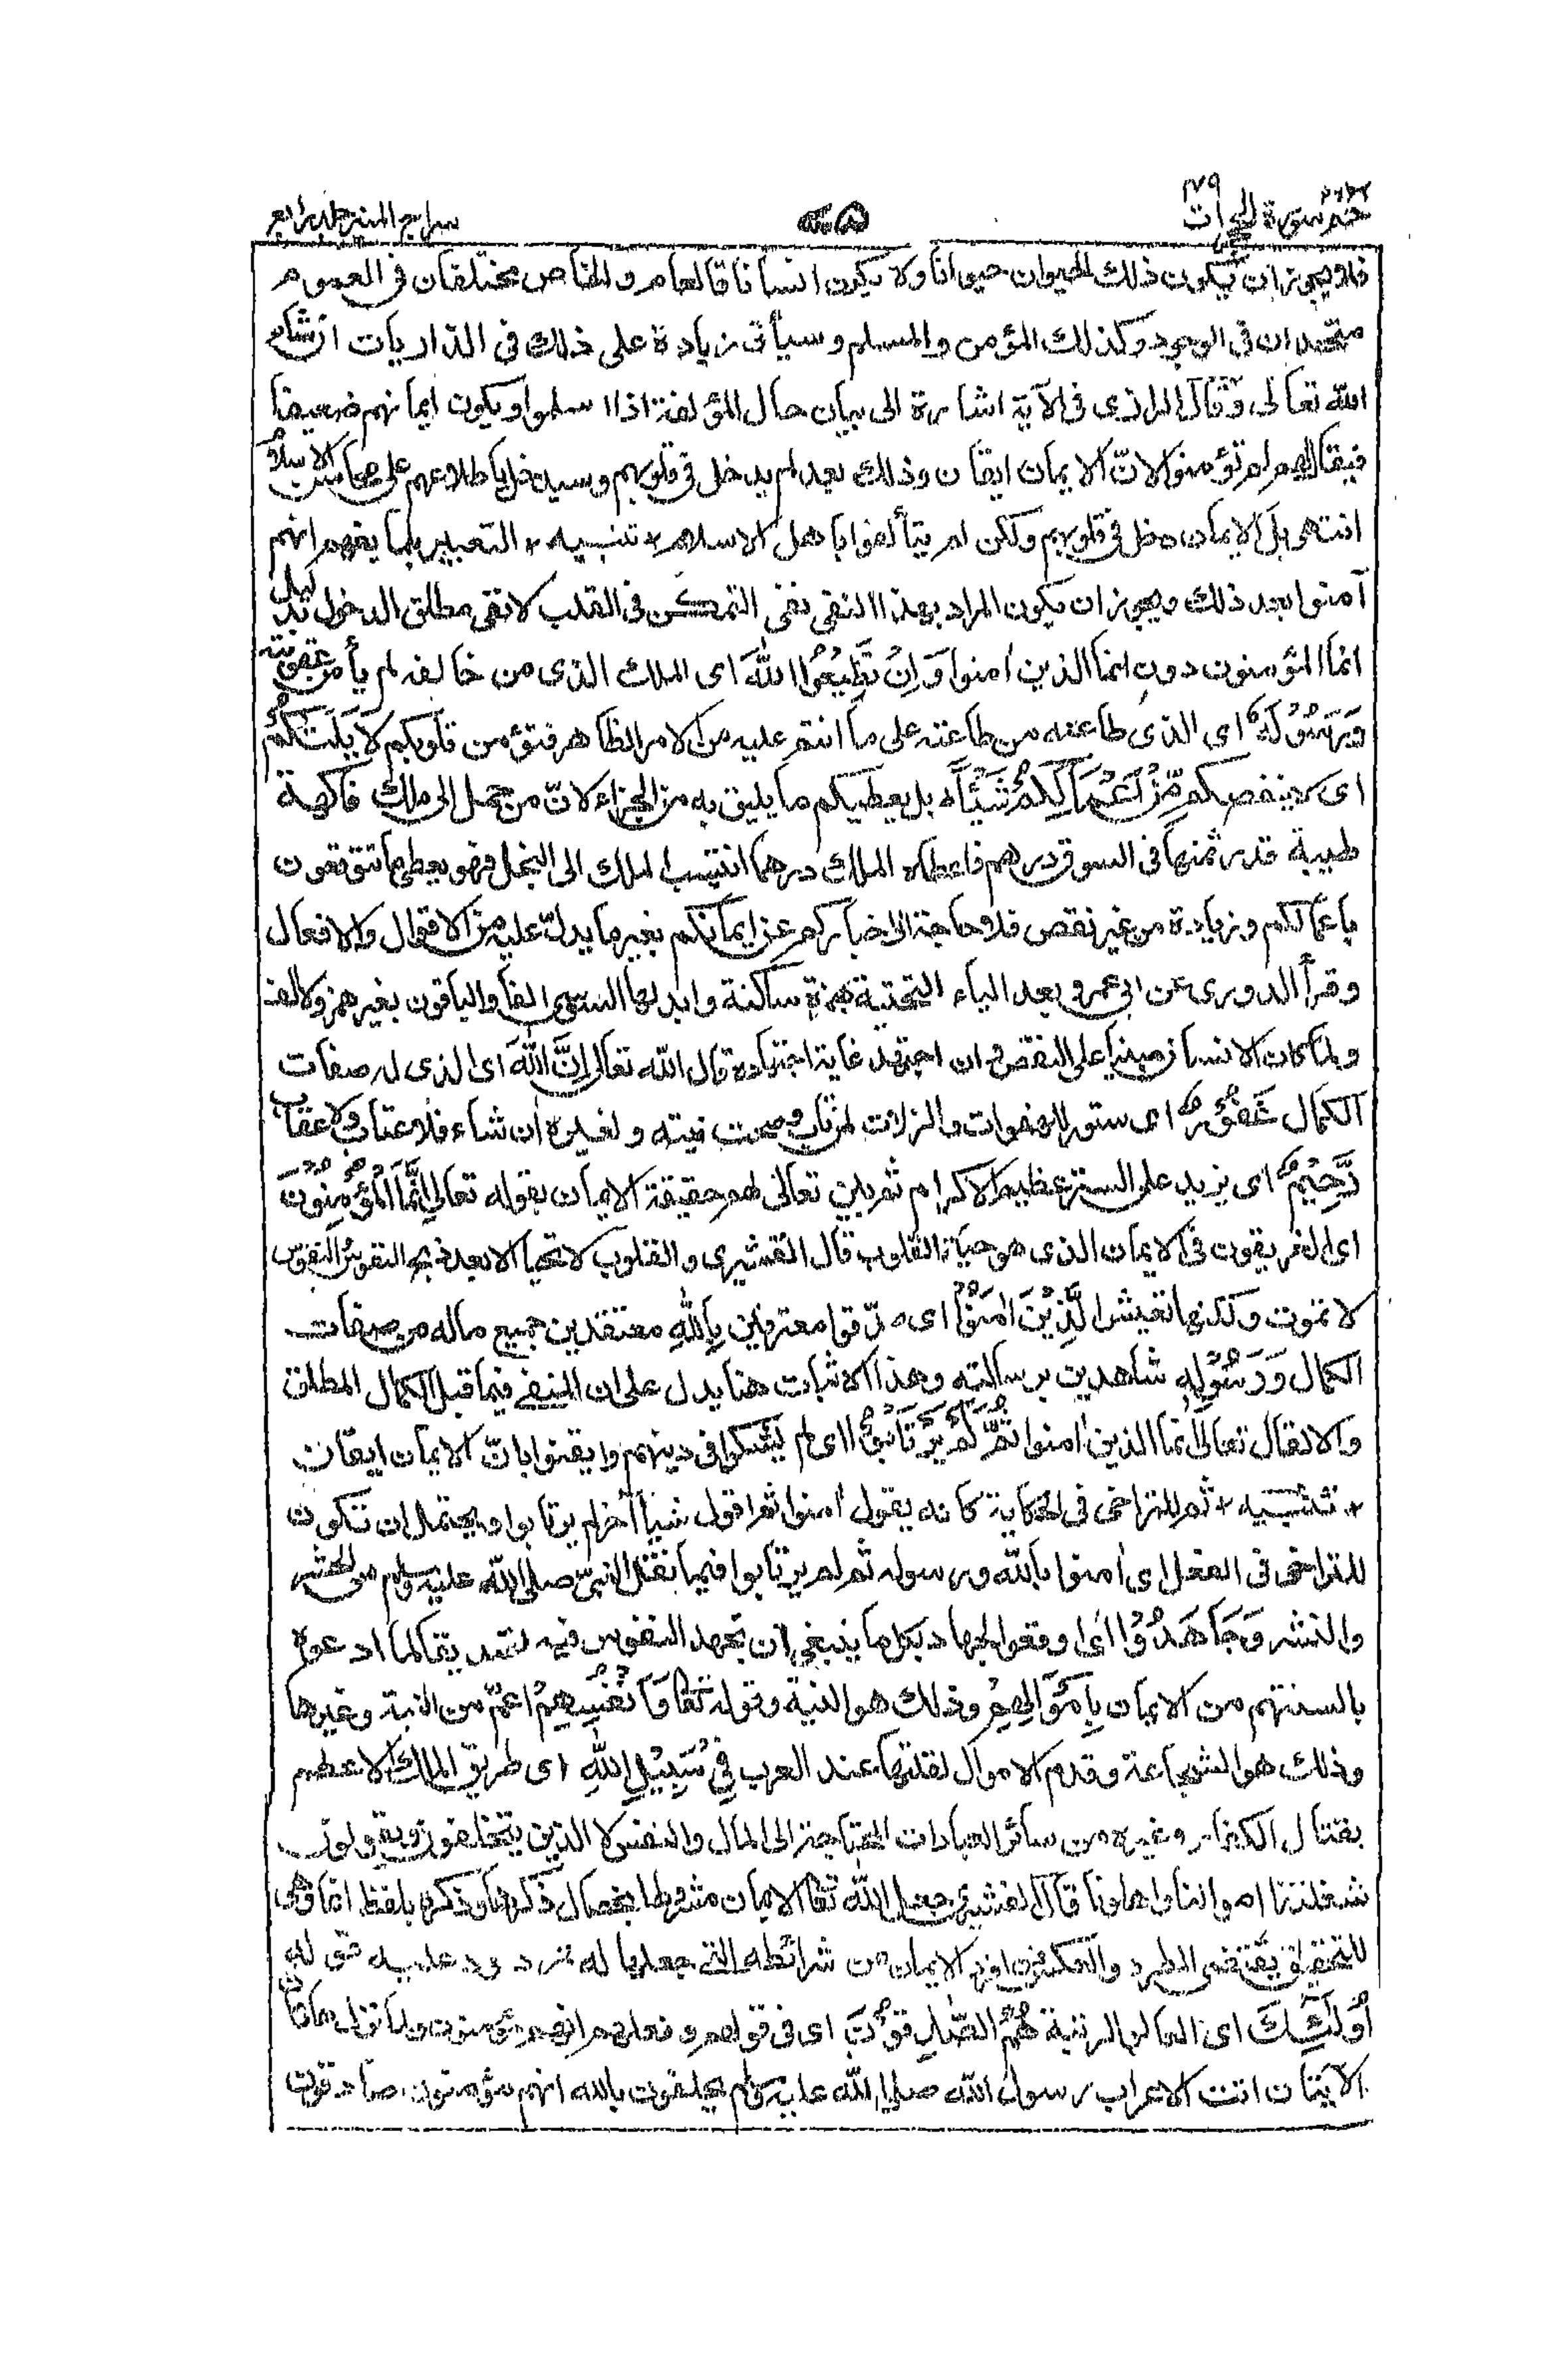 حم سورة الحجرات ٤٩
٨٥
سراج المنير جلد رابع
فلا يجوز ان يكون ذلك الحيوان حيوانا ولا يكون انسانا فالعام والخاص مختلفان فى العموم
متحدان فى الوجود وكذلك المؤمن والمسلم وسيأتى زيادة على ذلك فى الذاريات ان شاء
الله تعالى وقال الرازى فى الآية اشارة الى بيان حال المؤلفة اذا اسلموا ويكون ايمانهم ضعيفا
فيقال لهم لم تؤمنوا لانّ الايمان ايقان وذلك بعد لم يدخل فى قلوبهم وسيدخل باطلاعهم على محاسن الاسلام
انتهى بل الايمان دخل فى قلوبهم ولكن لم يتألفوا باهل الاسلام * تنبيه * التعبير بلما يفهم انهم
آمنوا بعد ذلك ويجوز ان يكون المراد بهذا النفى نفى التمكن فى القلب لا نفى مطلق الدخول بدليل
انما المؤمنون دون انما الذين اٰمنوا وَاِنْ تُطِيْعُوا اللّٰهَ اى الملك الذى من خالفه لم يأمن عقوبته
وَرَسُوْلَهٗ اى الذى طاعته من طاعته على ما انتم عليه من الامر الظاهر فتؤمن قلوبكم لَا يَلِتْكُمْ
اى لا ينقصكم مِّنْ اَعْمَالِكُمْ شَيْئًا بل يعطيكم ما يليق به من الجزاء لانّ من حمل الى ملك فاكهة
طيبة قدر ثمنها فى السوق درهم فاعطاه الملك درهما انتسب الملك الى البخل فهو يعطى ما تتوقعون
باعمالكم وزيادة من غير نقص فلا حاجة الى اخباركم عن ايمانكم بغير ما يدلّ عليه من الاقوال والافعال
وقرأ الدورى عن ابى عمرو بعد الياء التحتية همزة ساكنة وابدلها السوسى الفا والباقون بغير همز ولا الف
ولما كان الانسان مبنيا على النقص وان اجتهد غاية اجتهاده قال الله تعالى اِنَّ اللّٰهَ اى الذى له صفات
الكمال غَفُوْرٌ اى ستور للهفوات والزلات لمن تاب وصحت نيته ولغيره ان شاء فلا عتاب ولا عقاب
رَّحِيْمٌ اى يزيد على الستر عظيم الاكرام ثم بين تعالى لهم حقيقة الايمان بقوله تعالى اِنَّمَا الْمُؤْمِنُوْنَ
اى العريقون فى الايمان الذى هو حياة القلوب قال القشيرى والقلوب لا تحيا الا بعد ذبح النفوس والنفوس
لا تموت ولكنها تعيش الَّذِيْنَ اٰمَنُوْا اى صدّقوا معترفين بِاللّٰهِ معتقدين جميع ماله من صفات
الكمال وَرَسُوْلِهٖ شاهدين برسالته وهذا الاثبات هنا يدل على ان المنفى فيما قبل الكمال المطلق
والا لقال تعالى انما الذين اٰمنوا ثُمَّ لَمْ يَرْتَابُوْا اى لم يشكوا فى دينهم وايقنوا بانّ الايمان ايقان
* تنبيه * ثم للتراخى فى الحكاية كانه يقول اٰمنوا ثم اقول شيأ آخر لم يرتابوا ويحتمل ان تكون
للتراخى فى الفعل اى اٰمنوا بالله ورسوله ثم لم يرتابوا فيما نقل النبىّ صلى الله عليه وسلم من الحشر
والنشر وَجَاهَدُوْا اى اوقعوا الجهاد بكل ما ينبغى ان تجهد النفوس فيه تصديقا لما ادعوه
بالسنتهم من الايمان بِاَمْوَالِهِمْ وذلك هو النية وقوله تعالى وَاَنْفُسِهِمْ اعمّ من النية وغيرها
وذلك هو الشجاعة وقدم الاموال لقلتها عند العرب فِيْ سَبِيْلِ اللّٰهِ اى طريق الملك الاعظم
بقتال الكفار وغيره من سائر العبادات المحتاجة الى المال والنفس لا الذين يتخلفون ويقولون
شغلتنا اموالنا واهلونا قال القشيرى جعل الله تعالى الايمان مشروطا بخصال ذكرها وذكره بلفظ انما وهى
للتحقيق يقتضى الطرد والعكس فمن افرد الايمان من شرائطه التى جعلها له فمردود عليه قوله
اُولٰٓئِكَ اى العالو الرتبة هُمُ الصّٰدِقُوْنَ اى فى قولهم وفعلهم انهم مؤمنون ولما نزل هاتان
الآيتان اتت الاعراب رسول الله صلى الله عليه وسلم يحلفون بالله انهم مؤمنون صادقون